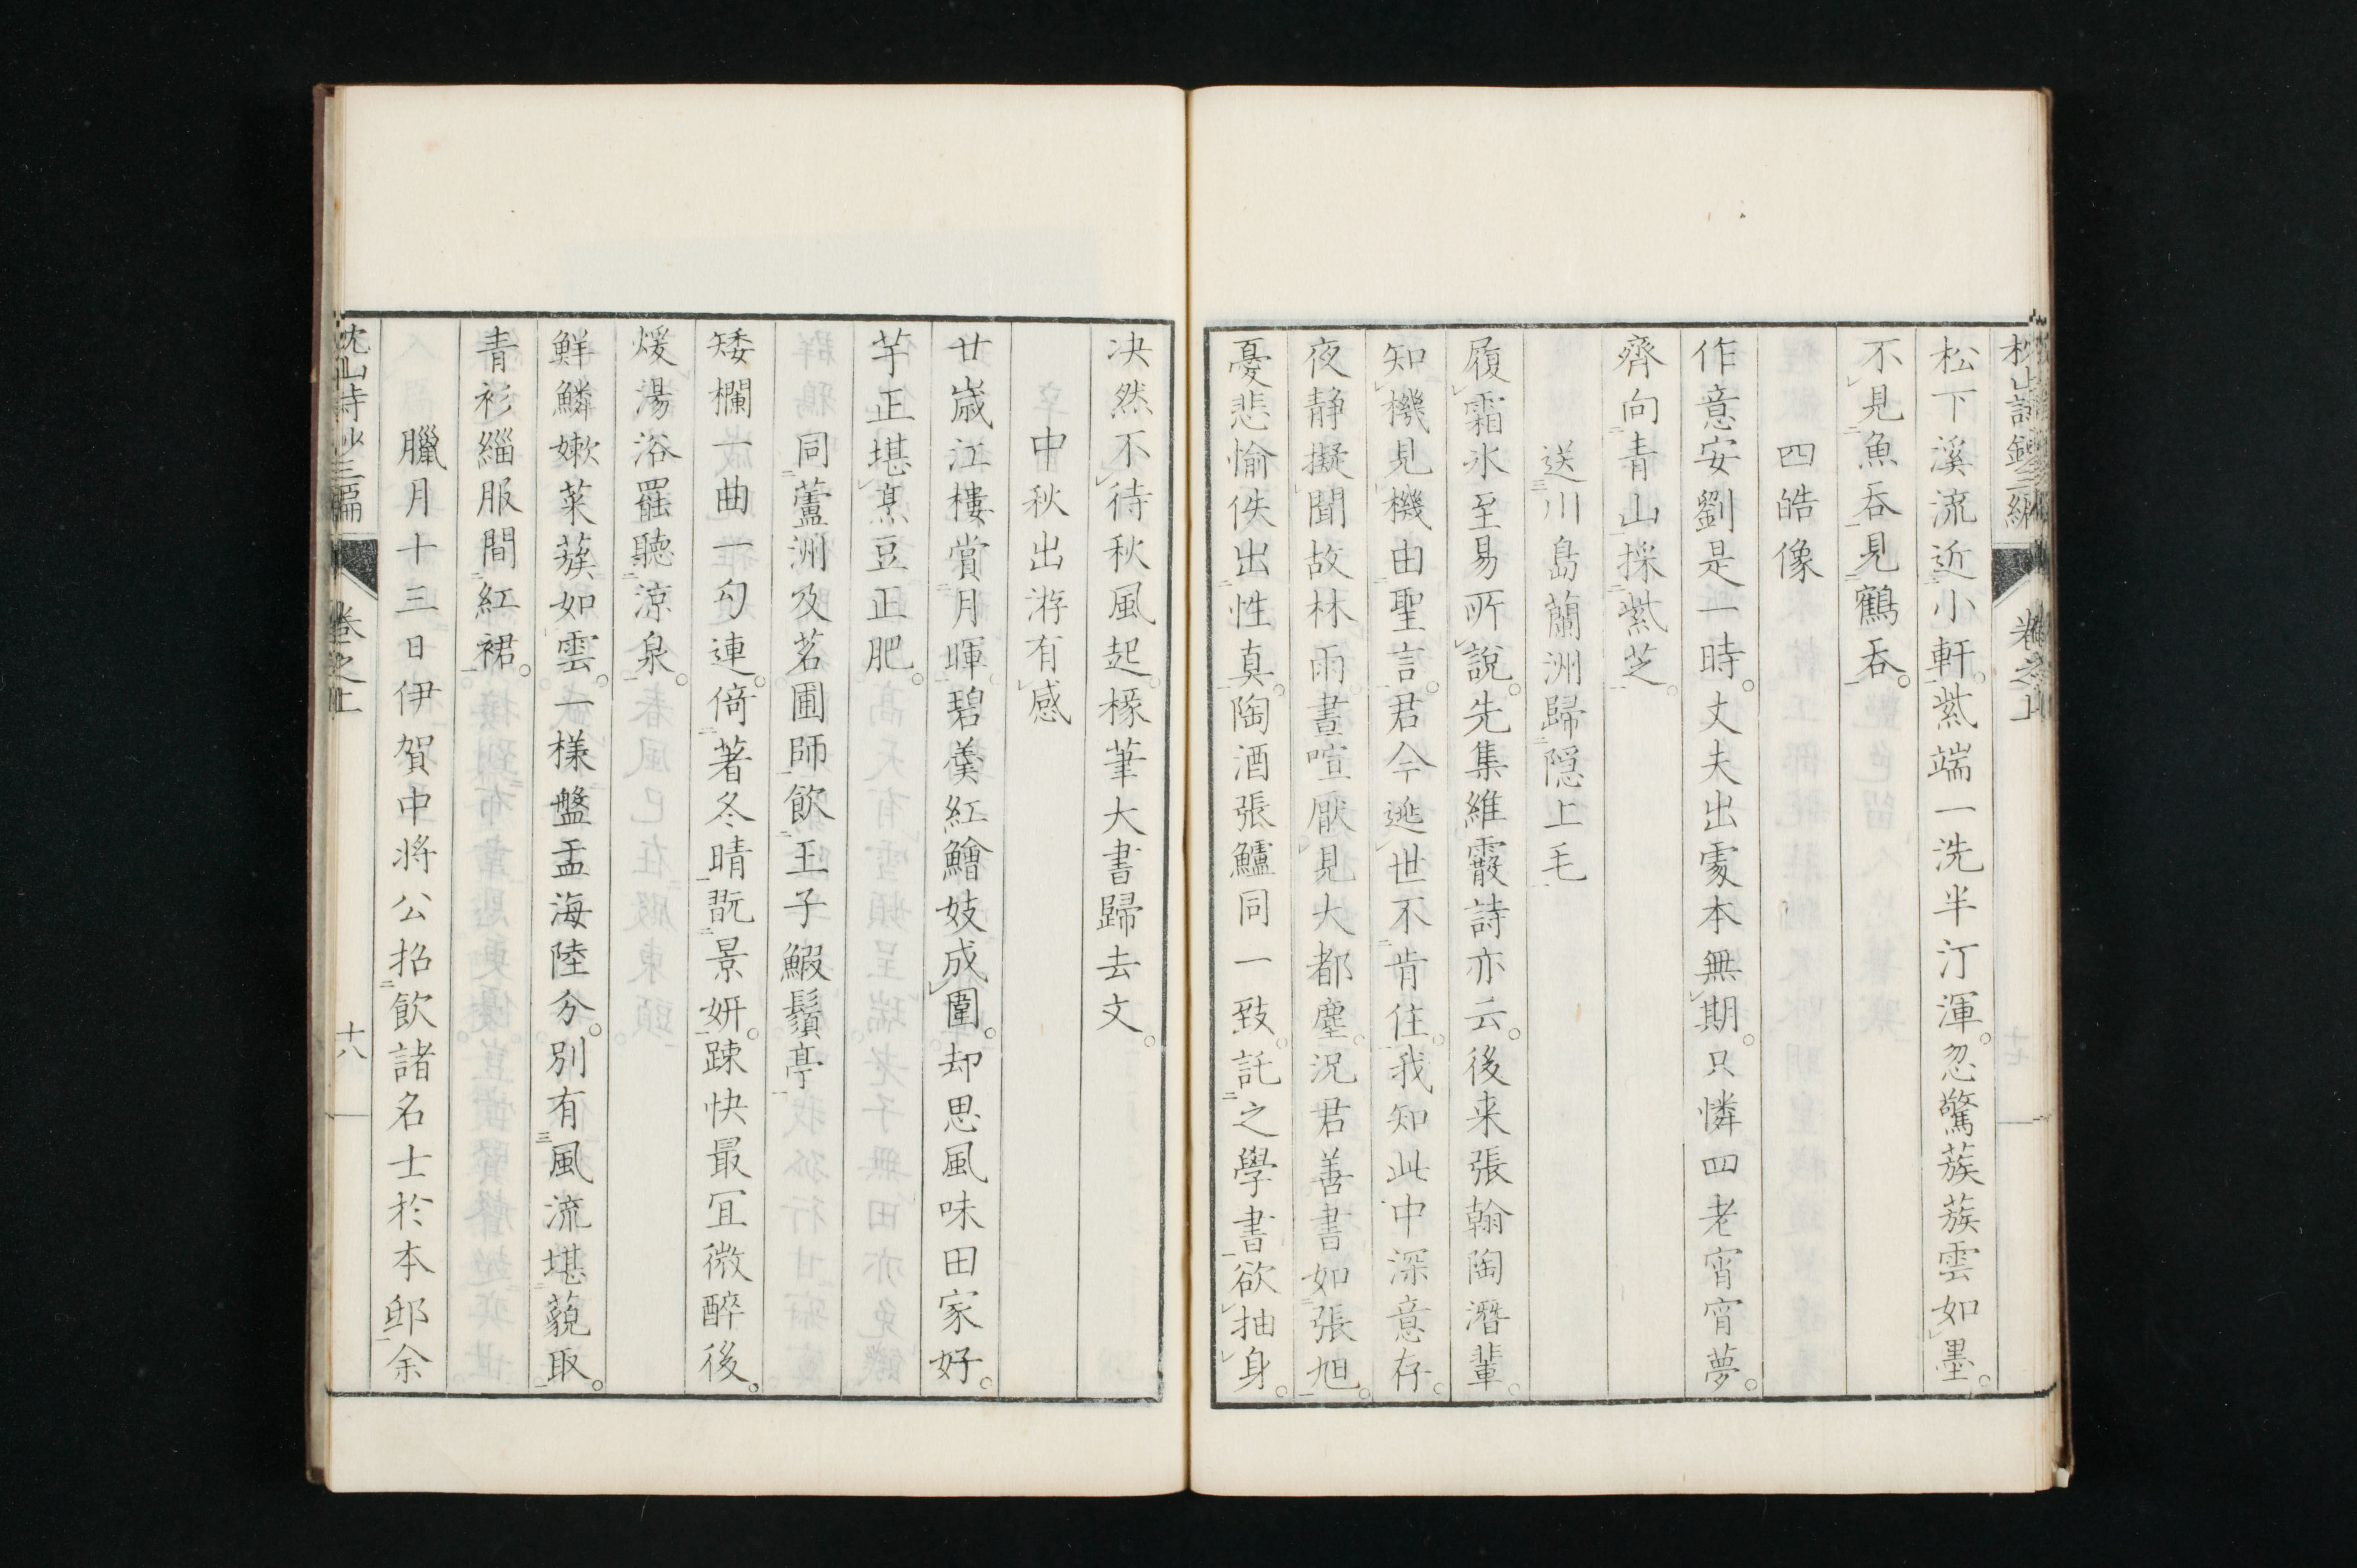 枕山詩鈔三編
卷之上
十七
松下溪流近小軒。紫端一洗半汀渾。忽驚蔟蔟雲如墨。
不見魚吞見鶴吞。
四皓像
作意安劉是一時。丈夫出處本無期。只憐四老宵宵夢。
齊向青山採紫芝。
送川島蘭洲歸隱上毛
履霜氷至易所說。先集維霰詩亦云。後来張翰陶潛輩。
知機見機由聖言。君今逃世不肯住。我知此中深意存。
夜静擬聞故林雨。晝喧厭見大都塵。況君善書如張旭。
憂悲愉佚出性真。陶酒張鱸同一致。託之學書欲抽身。
决然不待秋風起。椽筆大書歸去文。
中秋出游有感
廿歳江樓賞月暉。碧羹紅鱠妓成圍。却思風味田家好。
芋正堪烹豆正肥。
同蘆洲及茗圃師飲王子鰕鬚亭
矮欄一曲一勾連。倚著冬晴翫景妍。踈快最冝微醉後。
煖湯浴罷聽涼泉。
鮮鱗嫰菜蔟如雲。一樣盤盂海陸分。別有風流堪藐取。
青衫緇服間紅裙。
臘月十三日伊賀中将公招飲諸名士於本邸余
枕山詩鈔三編
卷之上
十八